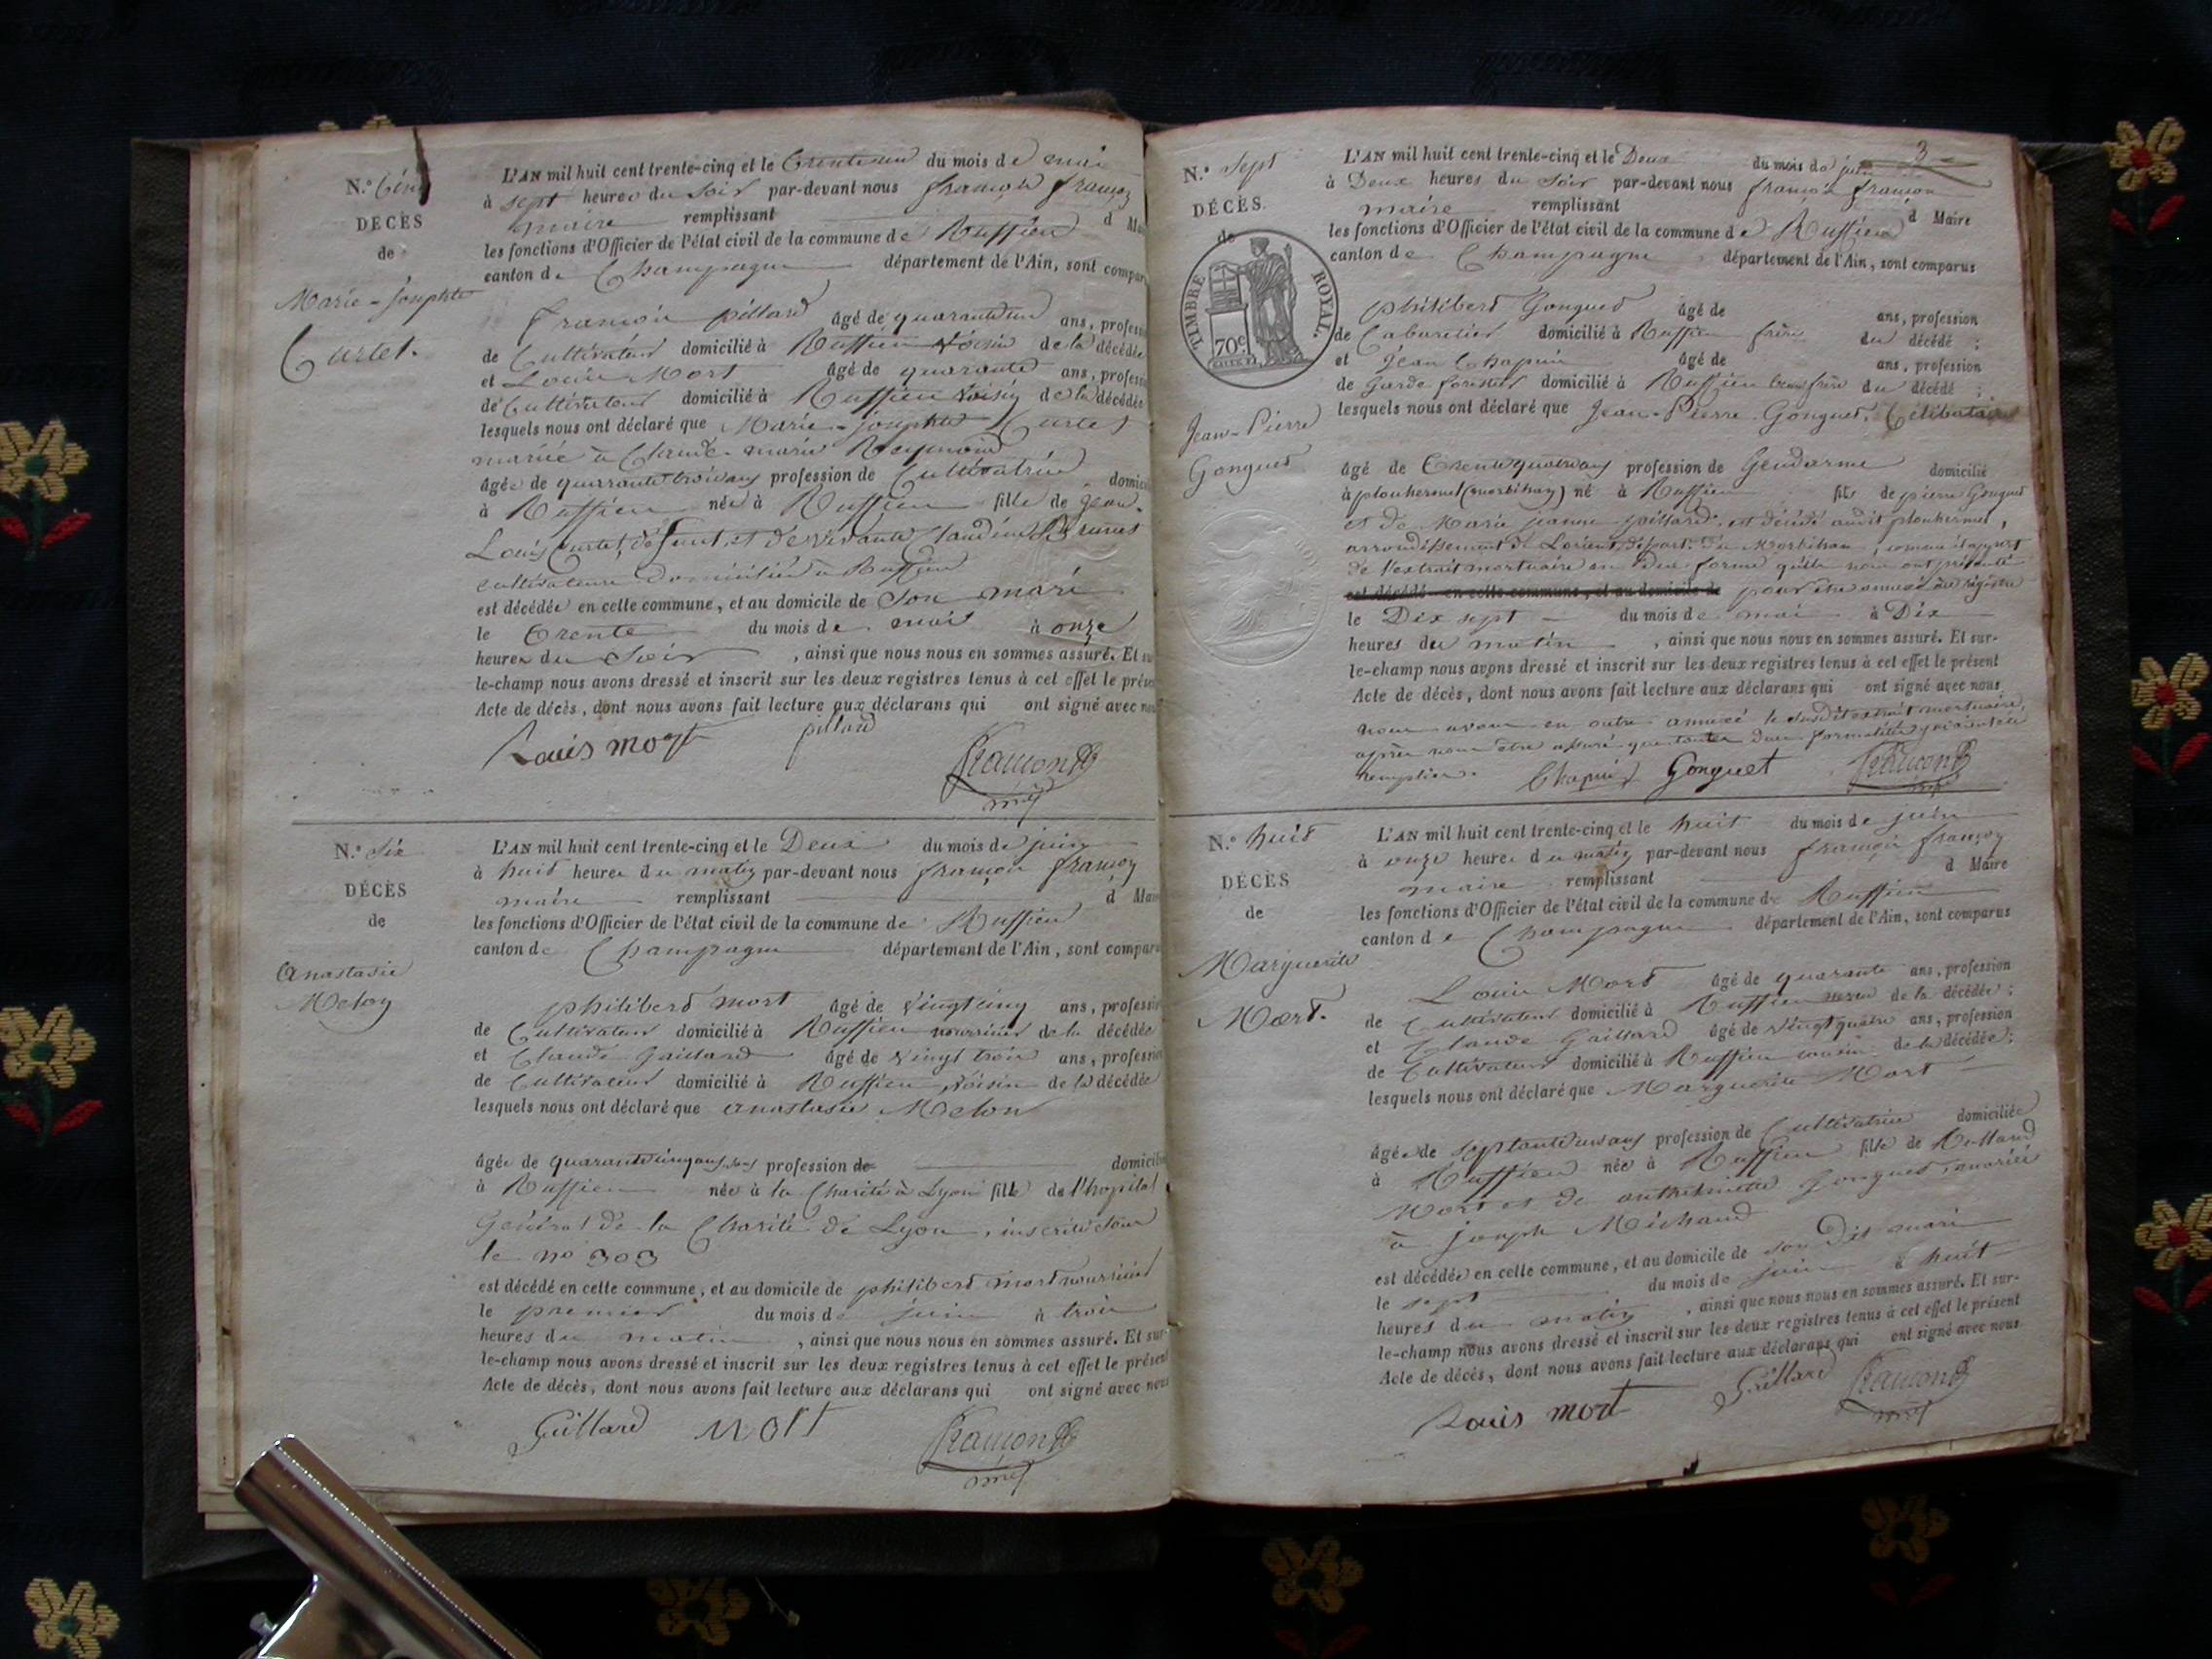 N.º Cinq
DÉCÈS
de
Marie-Josephte
Curtet.
L'AN mil huit cent trente-cinq et le Trente un du mois de mai
à sept heures du soir par-devant nous françois
maire remplissant d Mai
les fonctions d'Officier de l'état civil de la commune de Ruffieu
canton de Champagne département de l'Ain, sont compar
françois pillard âgé de quarante un ans, profess
de Cultivateur domicilié à Ruffieu voisin de la décédée
et Louis Mort âgé de quarante ans, profess
de Cultivateur domicilié à Ruffieu voisin de la décédée
lesquels nous ont déclaré que Marie-josephte Curtet
mariée à Claude-marie Reymond
âgée de quarante trois ans profession de Cultivatrice domici
à Ruffieu née à Ruffieu fille de Jean-
Louis Curtet, defunt, et de vivante Claudine
cultivateurs domiciliés à Ruffieu
est décédée en cette commune, et au domicile de Son mari
le Trente du mois de mai à onze
heures du Soir , ainsi que nous nous en sommes assuré. Et su
le-champ nous avons dressé et inscrit sur les deux registres tenus à cet effet le prése
Acte de décès, dont nous avons fait lecture aux déclarans qui ont signé avec no
Louis mort pillard
N.º Six
DÉCÈS
de
Anastasie
Melon
L'AN mil huit cent trente-cinq et le Deux du mois de juin
à huit heures du matin par-devant nous françois
maire remplissant d Mai
les fonctions d'Officier de l'état civil de la commune de Ruffieu
canton de Champagne département de l'Ain, sont comparu
philibert mort âgé de vingt cinq ans, professi
de Cultivateur domicilié à Ruffieu nourricier de la décédée
et Claude Gaillard âgé de vingt trois ans, professi
de Cultivateur domicilié à Ruffieu voisin de la décédée
lesquels nous ont déclaré que anastasie Melon
âgée de quarante cinq profession de domicili
à Ruffieu née à la Charité à Lyon fille de l'hopital
Général de la Charité de Lyon, inscrite sous
le no 303
est décédé en cette commune, et au domicile de philibert mort nourricier
le premier du mois de juin à trois
heures du matin , ainsi que nous nous en sommes assuré. Et sur
le-champ nous avons dressé et inscrit sur les deux registres tenus à cet effet le présen
Acte de décès, dont nous avons fait lecture aux déclarans qui ont signé avec nous
Gaillard mort
3
N.º Sept
DÉCÈS.
de
TIMBRE ROYAL.
70c
Jean-Pierre
Gonguet
L'AN mil huit cent trente-cinq et le Deux du mois de juin
à Deux heures du Soir par-devant nous françois
maire remplissant d Maire
les fonctions d'Officier de l'état civil de la commune de Ruffieu
canton de Champagne département de l'Ain, sont comparus
philibert Gonguet âgé de ans, profession
de Cabaretier domicilié à Ruffieu frère du décédé ;
et Jean Chapuis âgé de ans, profession
de Garde forestier domicilié à Ruffieu beau frère du décédé ;
lesquels nous ont déclaré que Jean-Pierre Gonguet, Célibataire
âgé de Trente quatre ans profession de Gendarme domicilié
à plouhermel (morbihan) né à Ruffieu fils de pierre Gonguet
et de Marie jeanne pillard, et décédé audit plouhermel,
arrondissement de Lorient, départ. du Morbihan, comme il appert
de l'extrait mortuaire en due forme qu'ils nous ont présenté
est décédé en cette commune, et au domicile de pour être annexé au régistre
le Dix sept du mois de mai à Dix
heures du matin , ainsi que nous nous en sommes assuré. Et sur-
le-champ nous avons dressé et inscrit sur les deux registres tenus à cet effet le présent
Acte de décès, dont nous avons fait lecture aux déclarans qui ont signé avec nous
nous avons en outre annexé le susdit extrait mortuaire,
après nous être assuré que toutes
remplies. Chapuis Gonguet
N.º huit
DÉCÈS
de
Marguerite
Mort.
L'AN mil huit cent trente-cinq et le huit du mois de juin
à onze heures du matin par-devant nous françois
maire remplissant d Maire
les fonctions d'Officier de l'état civil de la commune de Ruffieu
canton de Champagne département de l'Ain, sont comparus
Louis Mort âgé de quarante ans, profession
de Cultivateur domicilié à Ruffieu neveu de la décédée ;
et Claude Gaillard âgé de vingt quatre ans, profession
de Cultivateur domicilié à Ruffieu cousin de la décédée ;
lesquels nous ont déclaré que Marguerite Mort
âgée de septante un ans profession de Cultivatrice domiciliée
à Ruffieu née à Ruffieu fille de Rolland
Mort et de anthelmette Gonguet, mariée
à Joseph Michaud
est décédée en cette commune, et au domicile de son Dit mari
le sept du mois de juin à huit
heures du matin , ainsi que nous nous en sommes assuré. Et sur-
le-champ nous avons dressé et inscrit sur les deux registres tenus à cet effet le présent
Acte de décès, dont nous avons fait lecture aux déclarans qui ont signé avec nous
Louis mort Gaillard